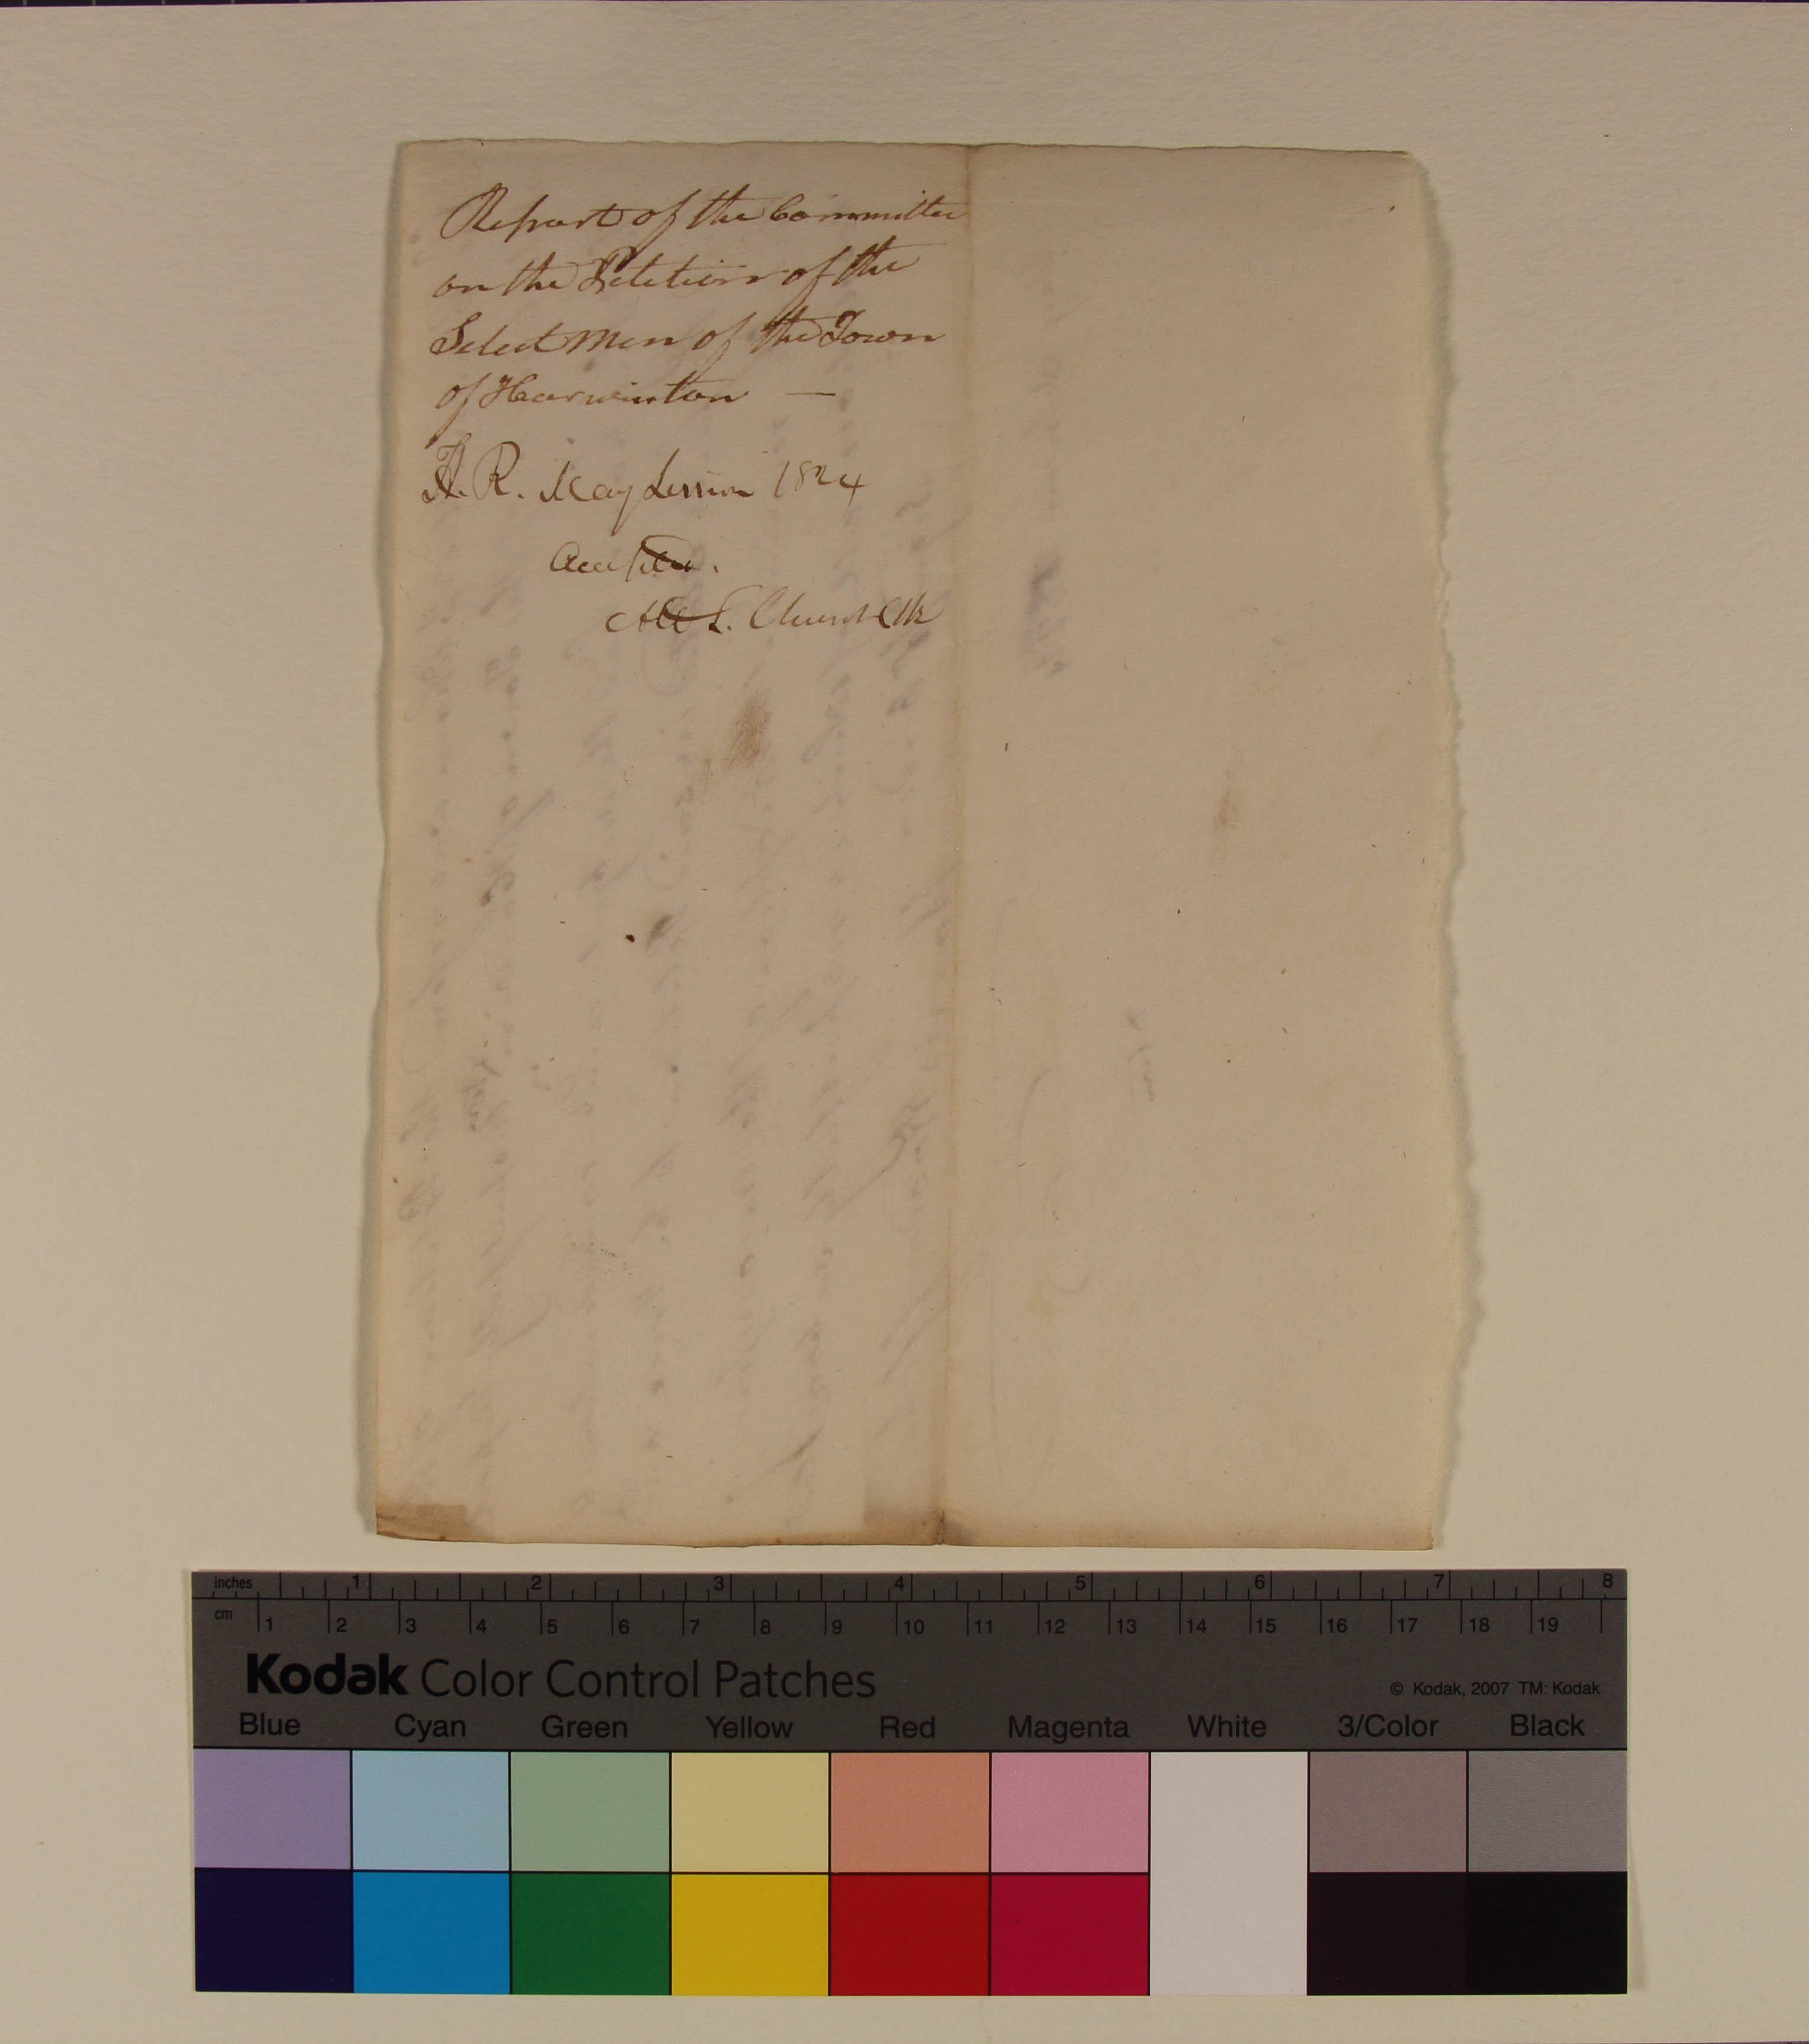 Report of the Committee
on the Petition of the
Select Men of the Town
of Harwinton —
H. R. May Session 1824
Accepted.
Att L. Church Clk
inches 1 2 3 4 5 6 7 8
cm 1 2 3 4 5 6 7 8 9 10 11 12 13 14 15 16 17 18 19
Kodak Color Control Patches
© Kodak, 2007 TM: Kodak
Blue Cyan Green Yellow Red Magenta White 3/Color Black